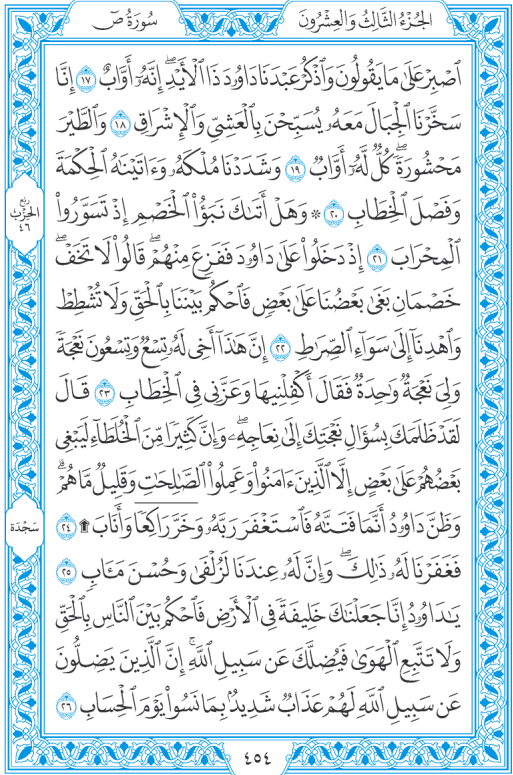 الجُزْءُ الثَّالِثُ وَالْعِشْرُونَ
سُورَةُ صٓ
ٱصْبِرْ عَلَىٰ مَا يَقُولُونَ وَٱذْكُرْ عَبْدَنَا دَاوُۥدَ ذَا ٱلْأَيْدِ ۖ إِنَّهُۥٓ أَوَّابٌ ١٧ إِنَّا
سَخَّرْنَا ٱلْجِبَالَ مَعَهُۥ يُسَبِّحْنَ بِٱلْعَشِىِّ وَٱلْإِشْرَاقِ ١٨ وَٱلطَّيْرَ
مَحْشُورَةً ۖ كُلٌّ لَّهُۥٓ أَوَّابٌ ١٩ وَشَدَدْنَا مُلْكَهُۥ وَءَاتَيْنَٰهُ ٱلْحِكْمَةَ
وَفَصْلَ ٱلْخِطَابِ ٢٠ ۞ وَهَلْ أَتَىٰكَ نَبَؤُا۟ ٱلْخَصْمِ إِذْ تَسَوَّرُوا۟
ٱلْمِحْرَابَ ٢١ إِذْ دَخَلُوا۟ عَلَىٰ دَاوُۥدَ فَفَزِعَ مِنْهُمْ ۖ قَالُوا۟ لَا تَخَفْ ۖ
خَصْمَانِ بَغَىٰ بَعْضُنَا عَلَىٰ بَعْضٍ فَٱحْكُم بَيْنَنَا بِٱلْحَقِّ وَلَا تُشْطِطْ
وَٱهْدِنَآ إِلَىٰ سَوَآءِ ٱلصِّرَٰطِ ٢٢ إِنَّ هَٰذَآ أَخِى لَهُۥ تِسْعٌ وَتِسْعُونَ نَعْجَةً
وَلِىَ نَعْجَةٌ وَٰحِدَةٌ فَقَالَ أَكْفِلْنِيهَا وَعَزَّنِى فِى ٱلْخِطَابِ ٢٣ قَالَ
لَقَدْ ظَلَمَكَ بِسُؤَالِ نَعْجَتِكَ إِلَىٰ نِعَاجِهِۦ ۖ وَإِنَّ كَثِيرًا مِّنَ ٱلْخُلَطَآءِ لَيَبْغِى
بَعْضُهُمْ عَلَىٰ بَعْضٍ إِلَّا ٱلَّذِينَ ءَامَنُوا۟ وَعَمِلُوا۟ ٱلصَّٰلِحَٰتِ وَقَلِيلٌ مَّا هُمْ ۗ
وَظَنَّ دَاوُۥدُ أَنَّمَا فَتَنَّٰهُ فَٱسْتَغْفَرَ رَبَّهُۥ وَخَرَّ رَاكِعًا وَأَنَابَ ۩ ٢٤
فَغَفَرْنَا لَهُۥ ذَٰلِكَ ۖ وَإِنَّ لَهُۥ عِندَنَا لَزُلْفَىٰ وَحُسْنَ مَـَٔابٍ ٢٥
يَٰدَاوُۥدُ إِنَّا جَعَلْنَٰكَ خَلِيفَةً فِى ٱلْأَرْضِ فَٱحْكُم بَيْنَ ٱلنَّاسِ بِٱلْحَقِّ
وَلَا تَتَّبِعِ ٱلْهَوَىٰ فَيُضِلَّكَ عَن سَبِيلِ ٱللَّهِ ۚ إِنَّ ٱلَّذِينَ يَضِلُّونَ
عَن سَبِيلِ ٱللَّهِ لَهُمْ عَذَابٌ شَدِيدٌۢ بِمَا نَسُوا۟ يَوْمَ ٱلْحِسَابِ ٢٦
ربع
الحزب
٤٦
سَجْدَة
٤٥٤